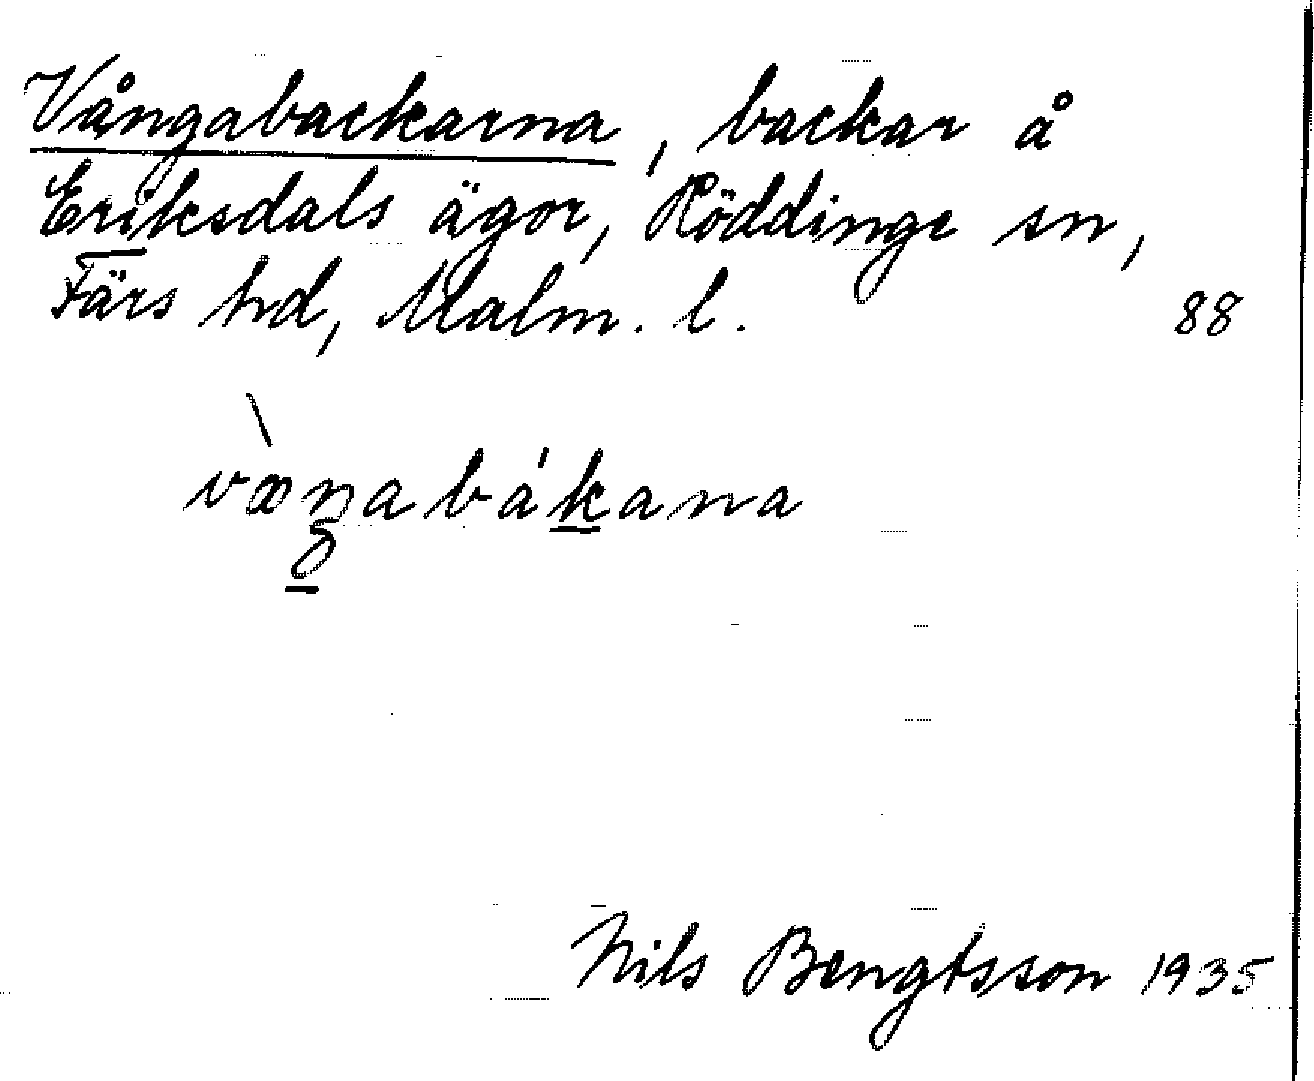 Vångabackarna, backar å
Eriksdals ägor, Röddinge sn,
Färs hd, Malm. l.
88
Nils Bengtsson 1935